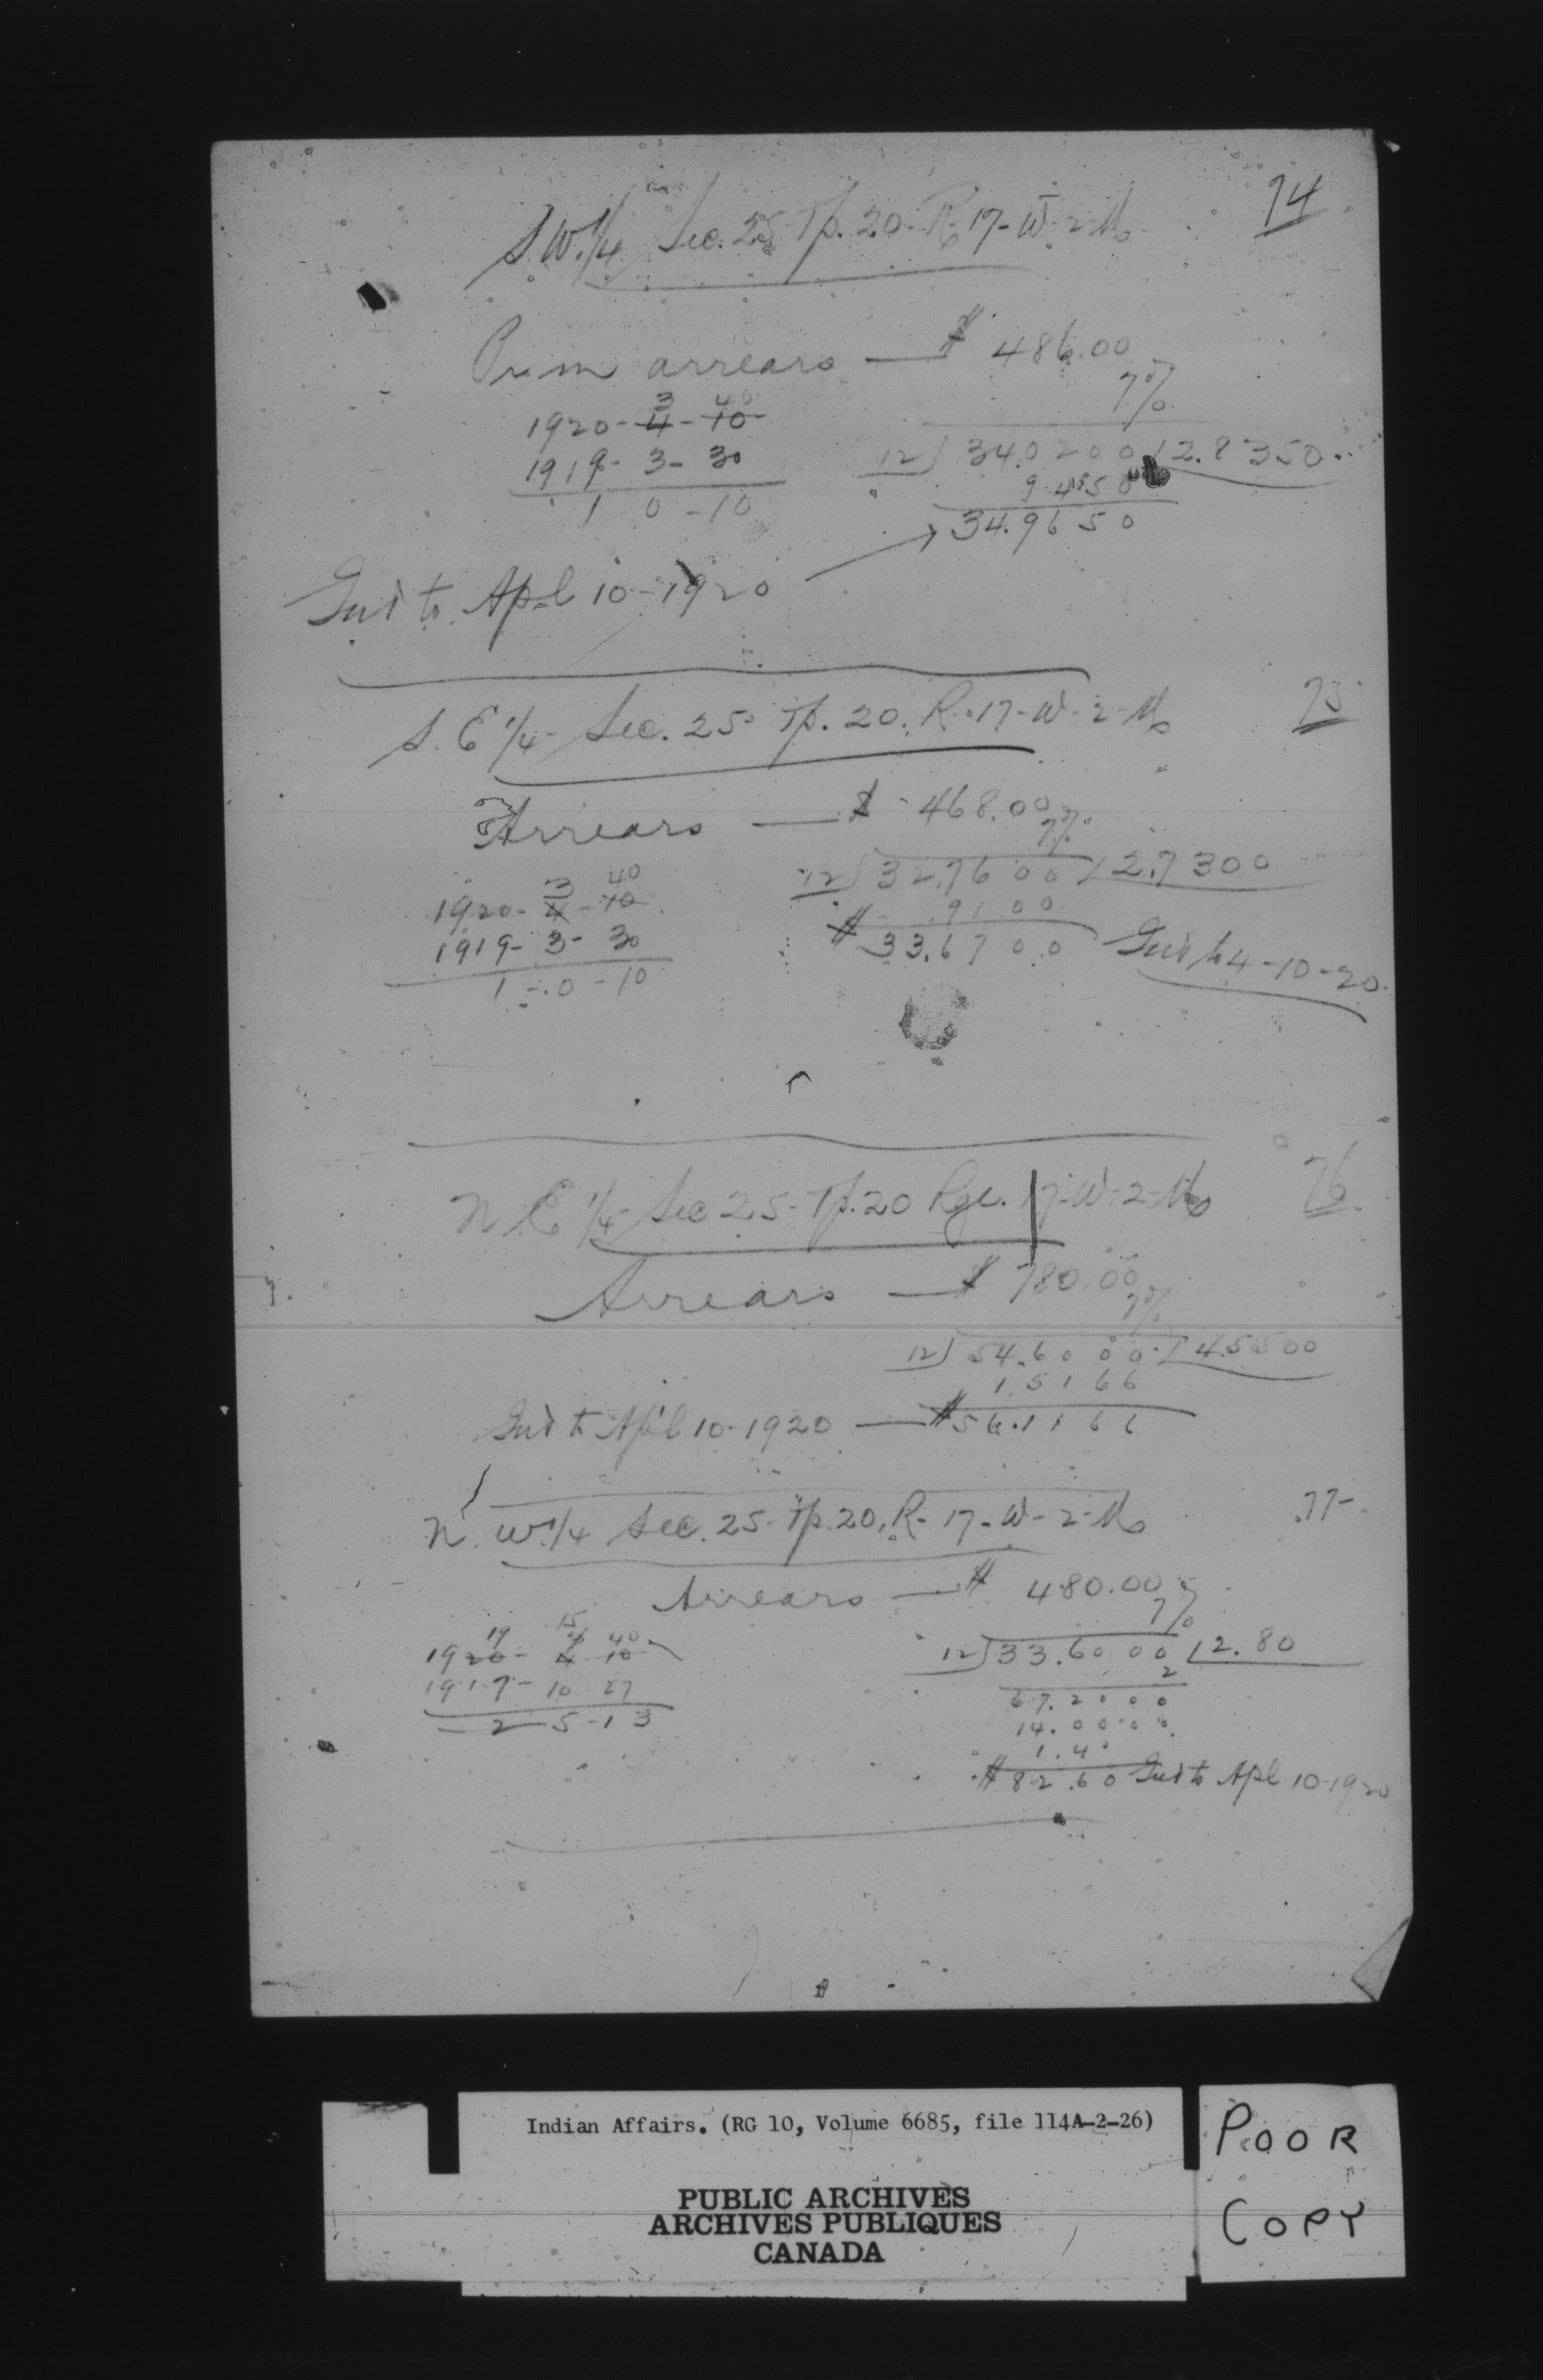 74
S.W.1/4 Sec. 25 Tp. 20 R 17-W-2-M
Prin arrears — $ 486.00
7%
3 40
1920-4-10
1919-3-30
1 0-10
12) 34.0200 /2.8350
9450
34.9650
Int to Apl 10-1920
75
S.E 1/4- Sec. 25 Tp. 20. R.17-W-2-M
Arrears — $ 468.00
7%
3 40
1920-4-10
1919-3-30
1-0-10
12) 32.7600 /2.7300
.9100
$ 33.6700 Int to 4-10-20.
76
N.E 1/4 Sec 25-Tp.20 Rge. 17-W-2-M
Arrears — $ 780.00
7%
12) 54.6000 /4.5500
1.5166
Int to Apl 10-1920 — $56.1166
77-
N. W.1/4 Sec. 25-Tp.20, R-17-W-2-M
Arrears — $ 480.00
7%
19 15 40
1920-4 10
1917-10 27
2-5-13
12) 33.6000 /2.80
2
67.2000
14.0000
1.40
$82.60 Int to Apl 10-1920
Indian Affairs. (RG 10, Volume 6685, file 114A-2-26)
PUBLIC ARCHIVES
ARCHIVES PUBLIQUES
CANADA
POOR
COPY